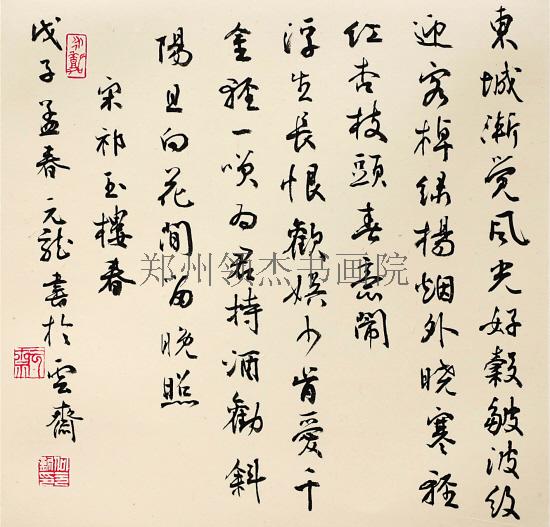 東城漸觉風光好縠皺波纹
迎客棹绿楊烟外晓寒轻
红杏枝頭春意鬧
浮生长恨歡娱少肯愛千
金輕一笑为君持酒勸斜
陽且向花間留晚照
宋祁玉樓春
戊子孟春元龙書於雲齋
郑州领杰书画院